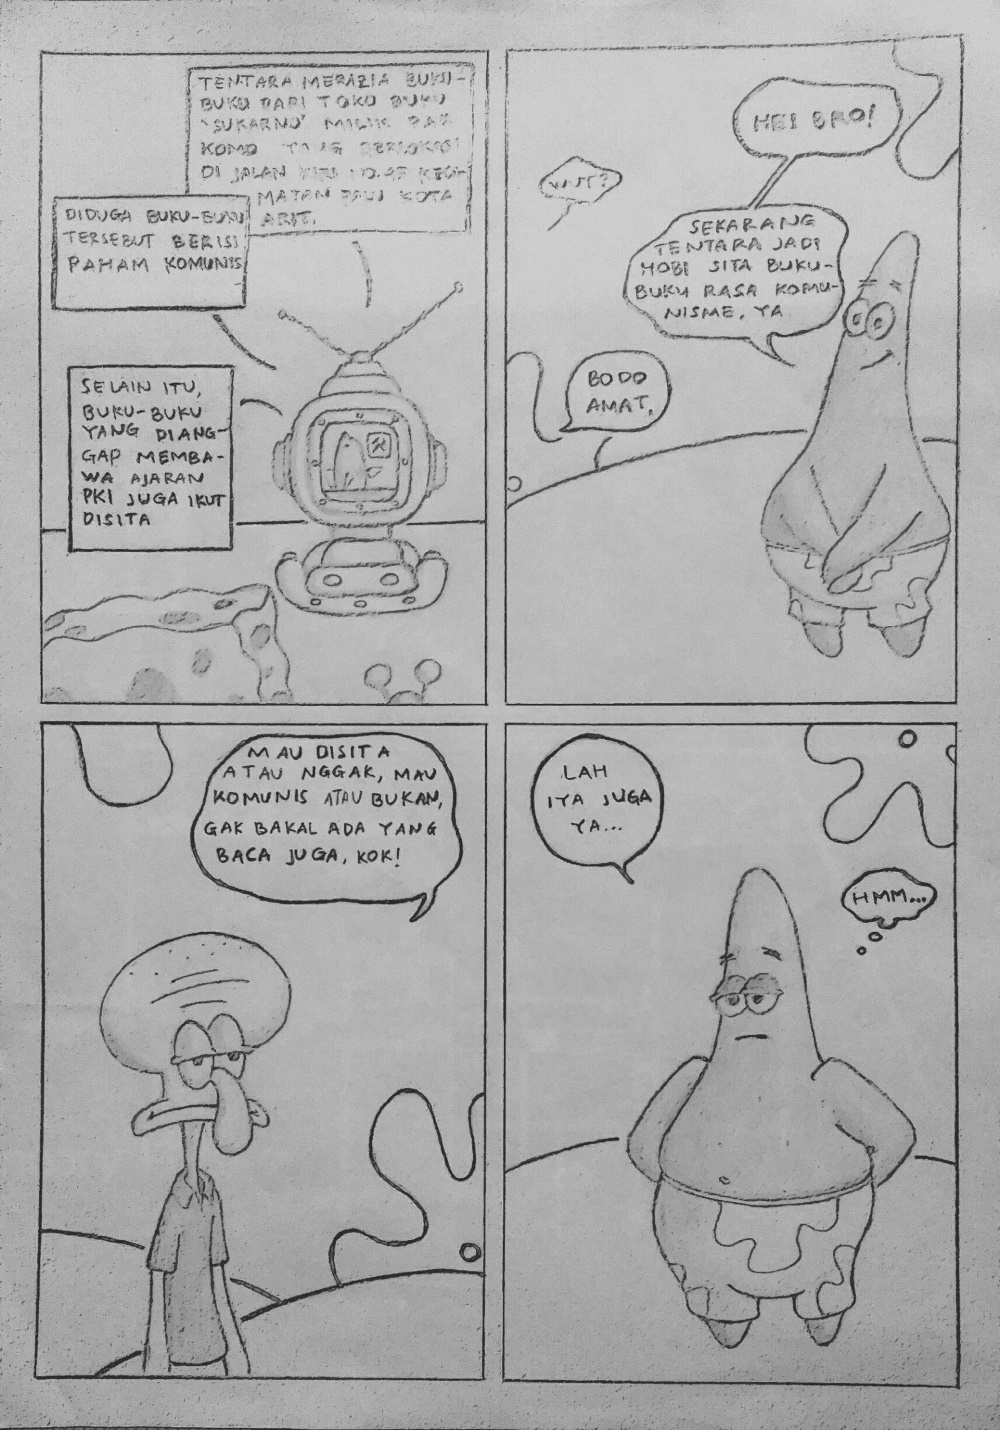 TENTARA MERAZIA BUKU-
BUKU DARI TOKO BUKU
'SUKARNO' MILIK PAK
KOMO YANG BERLOKASI
DI JALAN KIRI NO.45 KECA-
MATAN PALU KOTA
ARIT.
DIDUGA BUKU-BUKU
TERSEBUT BERISI
PAHAM KOMUNIS
SELAIN ITU,
BUKU-BUKU
YANG DIANG-
GAP MEMBA-
WA AJARAN
PKI JUGA IKUT
DISITA
HEI BRO!
WUT?
SEKARANG
TENTARA JADI
HOBI SITA BUKU-
BUKU RASA KOMU-
NISME, YA
BODO
AMAT.
MAU DISITA
ATAU NGGAK, MAU
KOMUNIS ATAU BUKAN,
GAK BAKAL ADA YANG
BACA JUGA, KOK!
LAH
IYA JUGA
YA...
HMM...